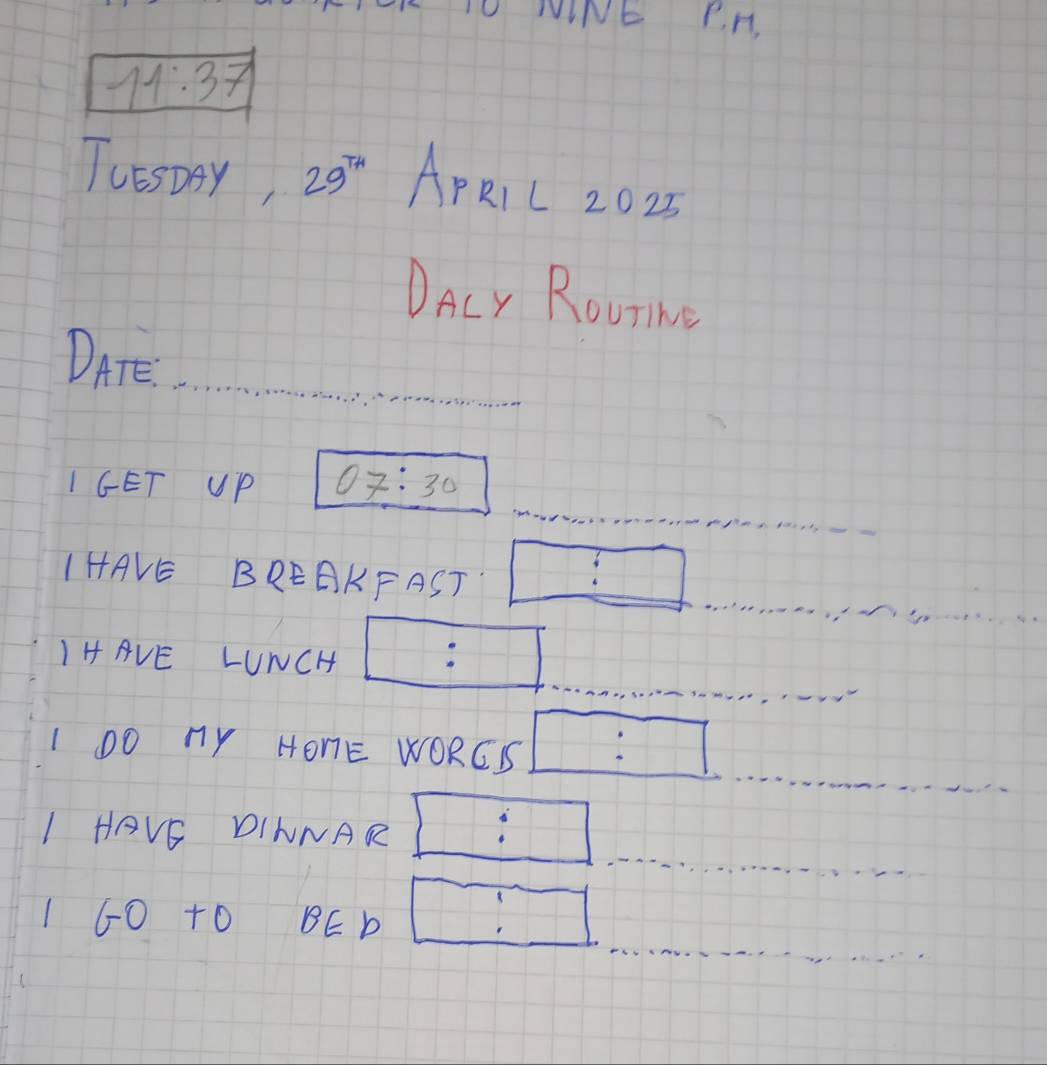 TO NINE P.M.
11:37
TUESDAY, 29TH APRIL 2025
DALY ROUTINE
DATE: ....................
I GET UP 07:30 ....................
I HAVE BREAKFAST : ....................
I HAVE LUNCH : ....................
I DO MY HOME : ....................
I HAVE DINNAR : ....................
I GO TO BED : ....................